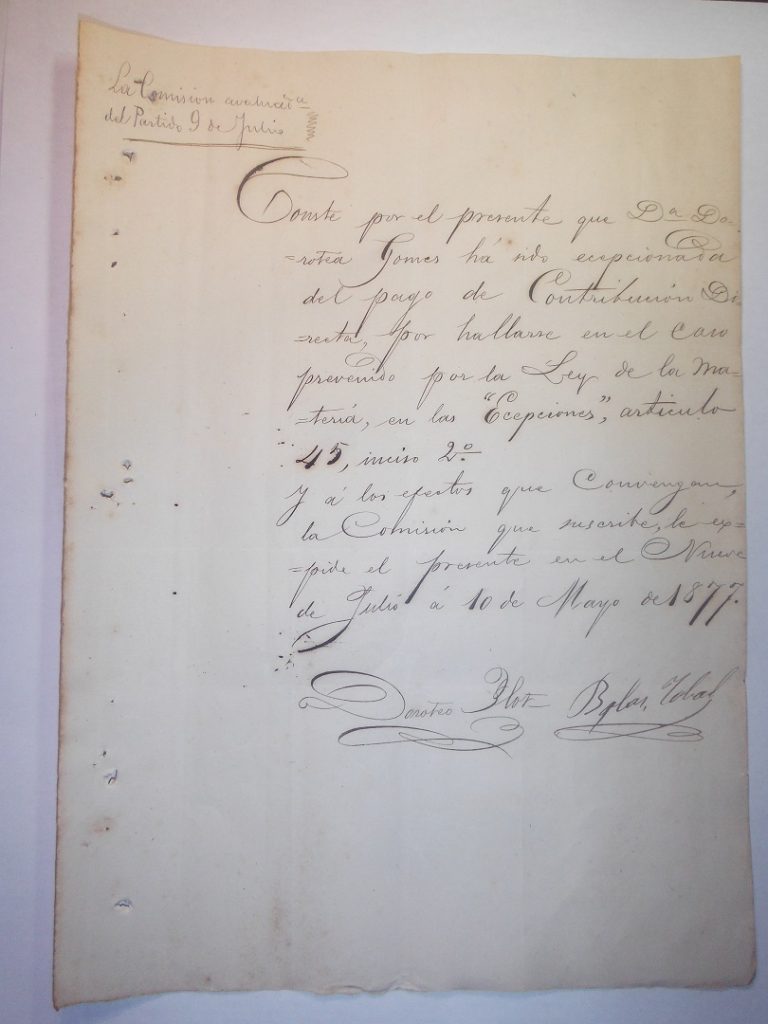 La Comision avaluad.ª
del Partido 9 de Julio
Conste por el presente que D.ª Do-
=rotea Gomes há sido ecepcionada
del pago de Contribución Di-
=recta, por hallarse en el caso
prevenido por la Ley de la ma-
=teriá, en las "Ecepciones", articulo
45, inciso 2.º
Y á los efectos que Convengan,
la Comisión que suscribe, le ex=
=pide el presente en el Nueve
de Julió á 10 de Mayo de 1877.
Doroteo Plot